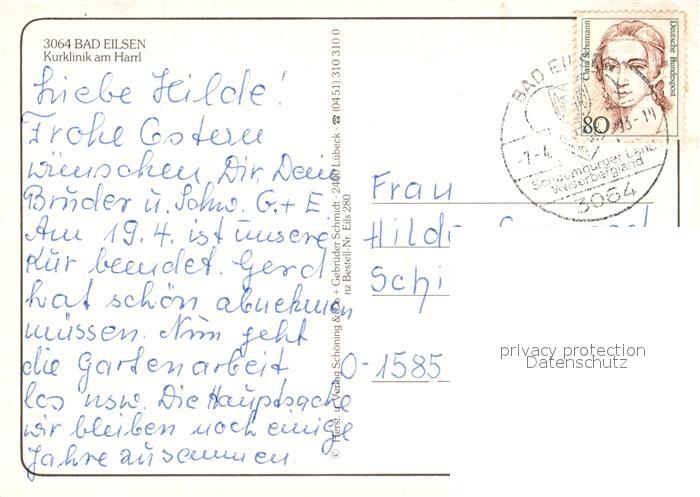 3064 BAD EILSEN
Kurklinik am Harrl
Liebe Hilde!
Frohe Ostern
wünschen Dir, Dein
Bruder u. Schw. G. + E
Am 19.4. ist unsere
Kur beendet. Gerd
hat schön abnehmen
müssen. Nun geht
die Gartenarbeit
los usw. Die Hauptsache
wir bleiben noch einige
Jahre zusammen.
© Herst. u. Verlag Schöning & Co + Gebrüder Schmidt · 2400 Lübeck · ☎ (0451) 310 310 0
nz Bestell-Nr. Eils 280
Clara Schumann
Deutsche Bundespost
80
BAD EILSEN
-7-4
13-14
Schaumburger Land
Weserbergland
3064
Frau
Hilde
Schi
O-1585
privacy protection
Datenschutz